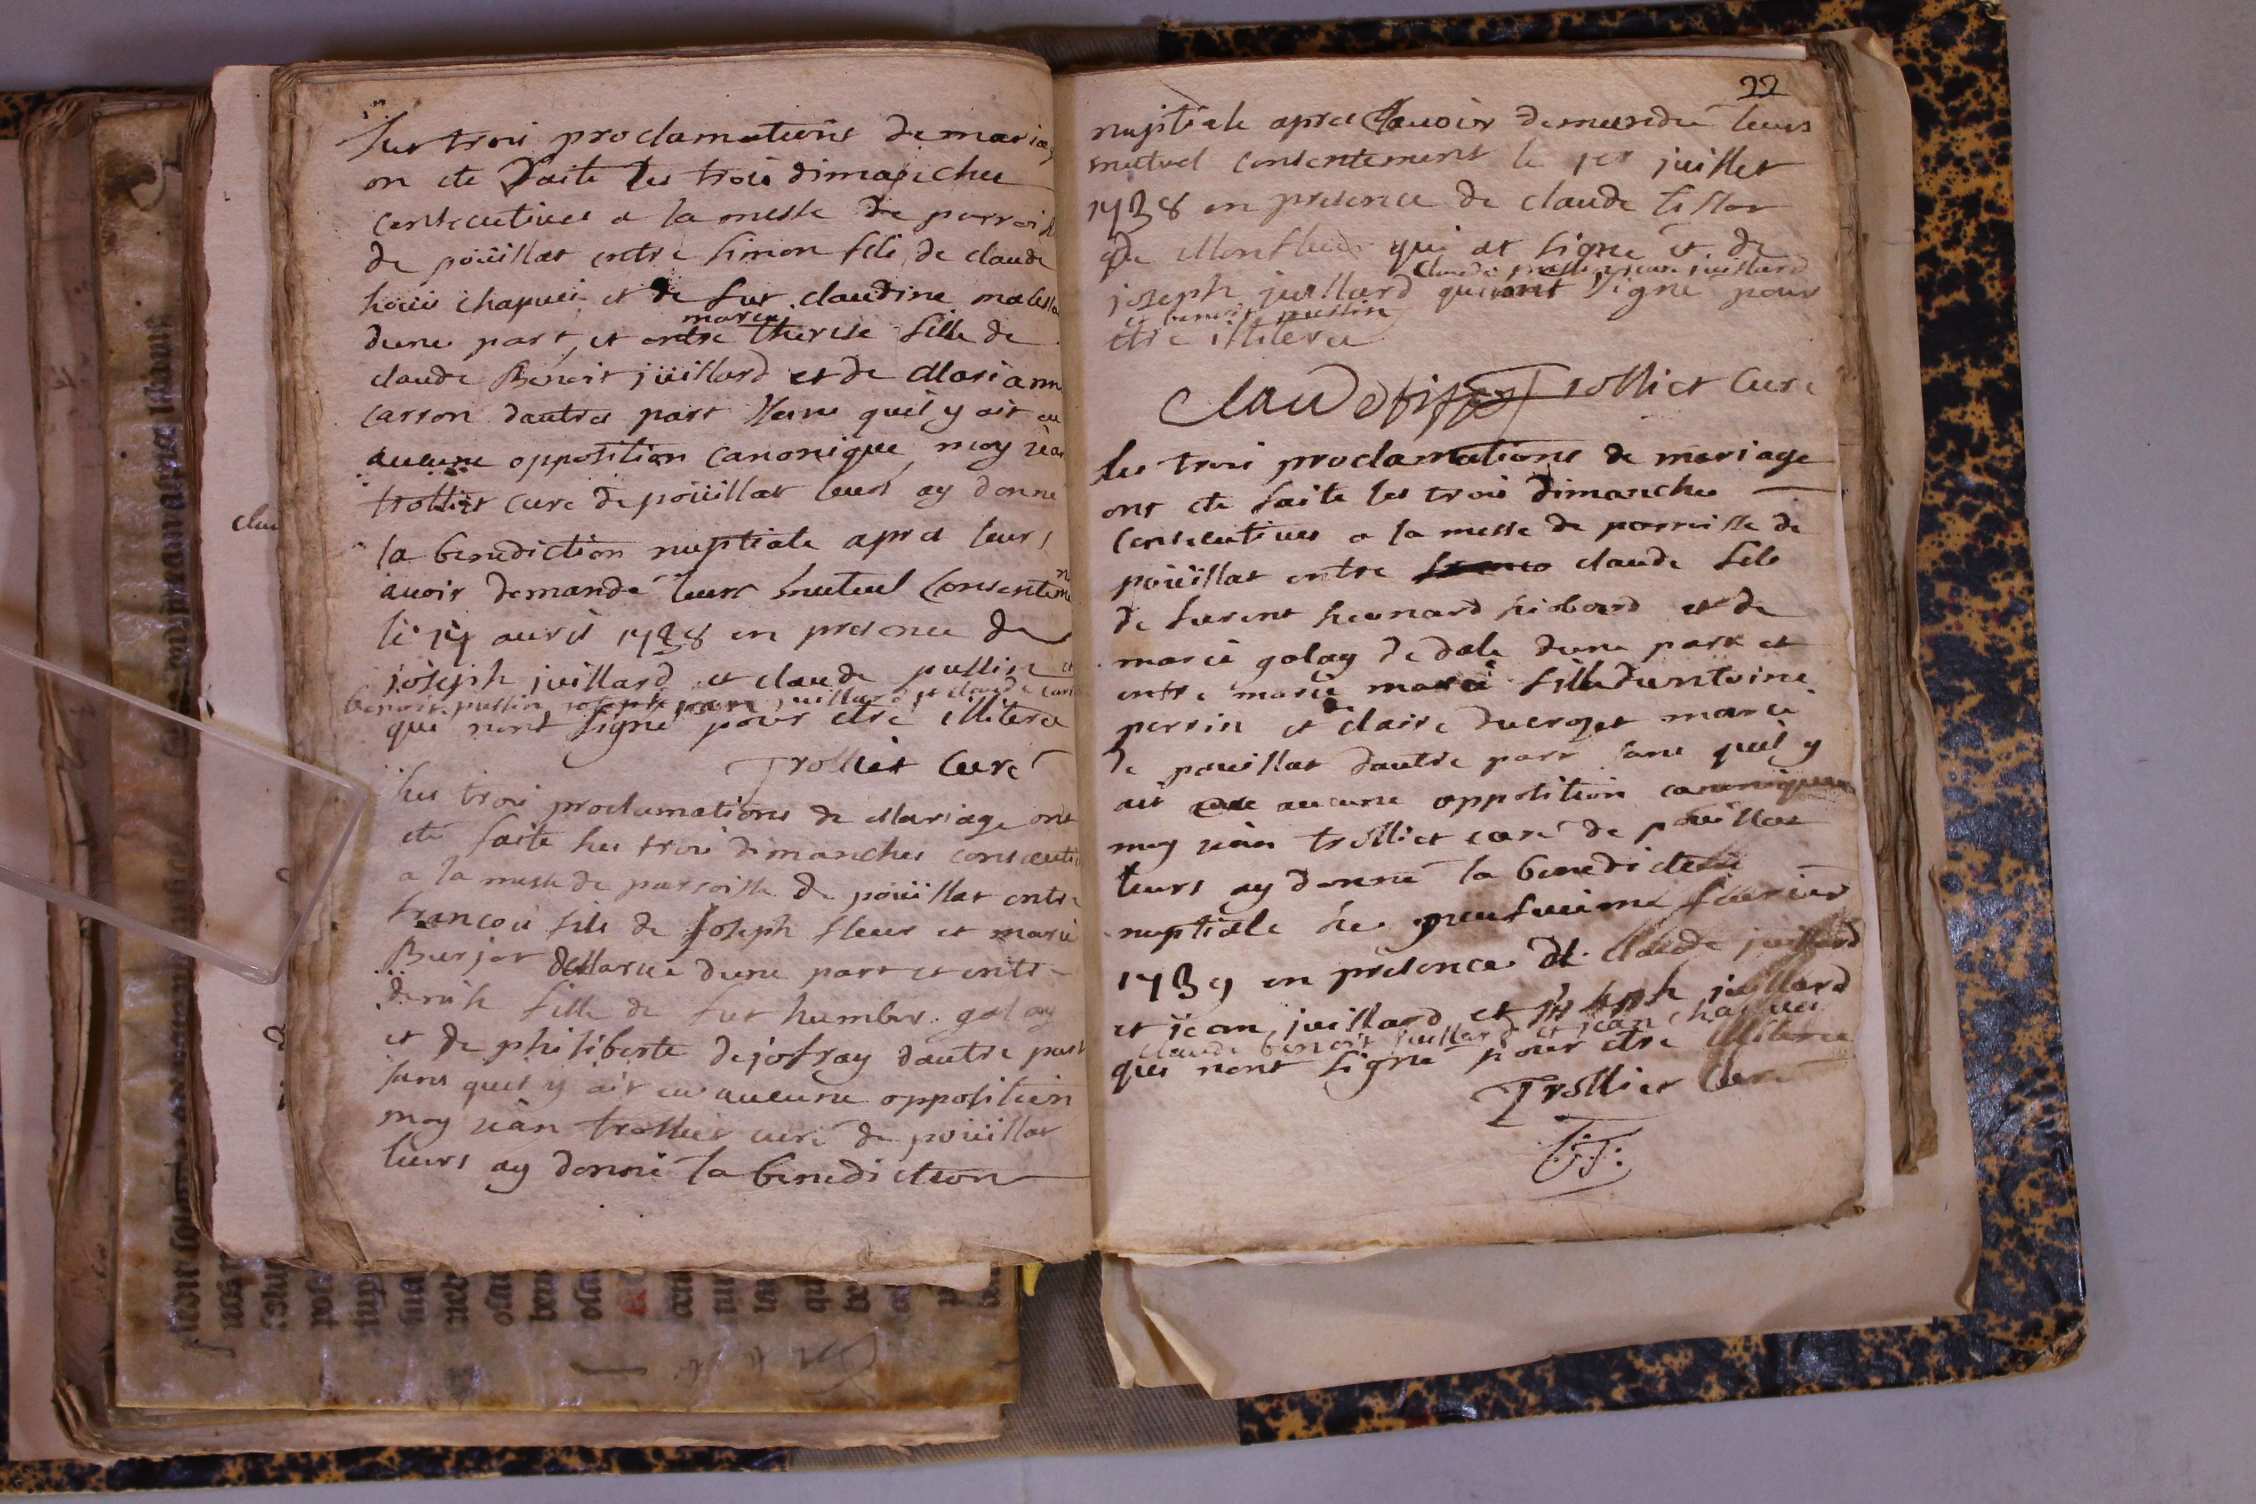 les trois proclamations de mariag
on ete faite les trois dimanches
consecutives a la messe de parrois
de poüillat entre simon fils de claude
chapuei et de fut claudine
dune part, et entre therese fille de
marie
claude Benoit jüillard et de Mariann
carron dautres part sans quil y ait eu
aucune opposition canonique moy jean
trolliet cure de poüillat leurs ay donné
la benediction nuptiale apres leurs
avoir demandé leurs mutuel consenteme
le avril 1738 en presence de
joseph juillard et claude pussin et
benoit pussin joseph jean juillard et claude
qui nont signé pour etre illiteres
Trolliet Curé
les trois proclamations de Mariage ont
eté faite les trois dimanches consecuti
a la messe de parroisse de poüillat entre
francois fils de joseph fleur et marie
Burjot dune part et entre
fille de fut humber golay
et de philiberte dejofray dautre part
sans quil y ait eu aucune opposition
moy jean trolliet curé de poüillat
leurs ay donné la benediction
22
nuptiale apres avoir demandé leurs
mutuel consentement le 1er juillet
1738 en presence de claude tissot
de qui at signé et de
claude pussin jean juillard
joseph juillard qui nont signé pour
et benoit pussin
etre illiteres
Claude tissot Trolliet Curé
les trois proclamations de mariage
ont ete faite les trois dimanches
consecutives a la messe de parroisse de
poüillat entre claude fils
de et de
marie golay de dune part et
entre marie fille dantoine
perrin et claire ducroset
de pouillat dautre part sans quil y
ait aucune opposition canonique
moy jean trolliet curé de poüillat
leurs ay donné la benediction
nuptiale le neufvieme fevrier
1739 en presence de claude juillard
et jean juillard et joseph juillard
claude benoit juillard et jean chapuei
qui nont signé pour etre illiteres
Trolliet Curé